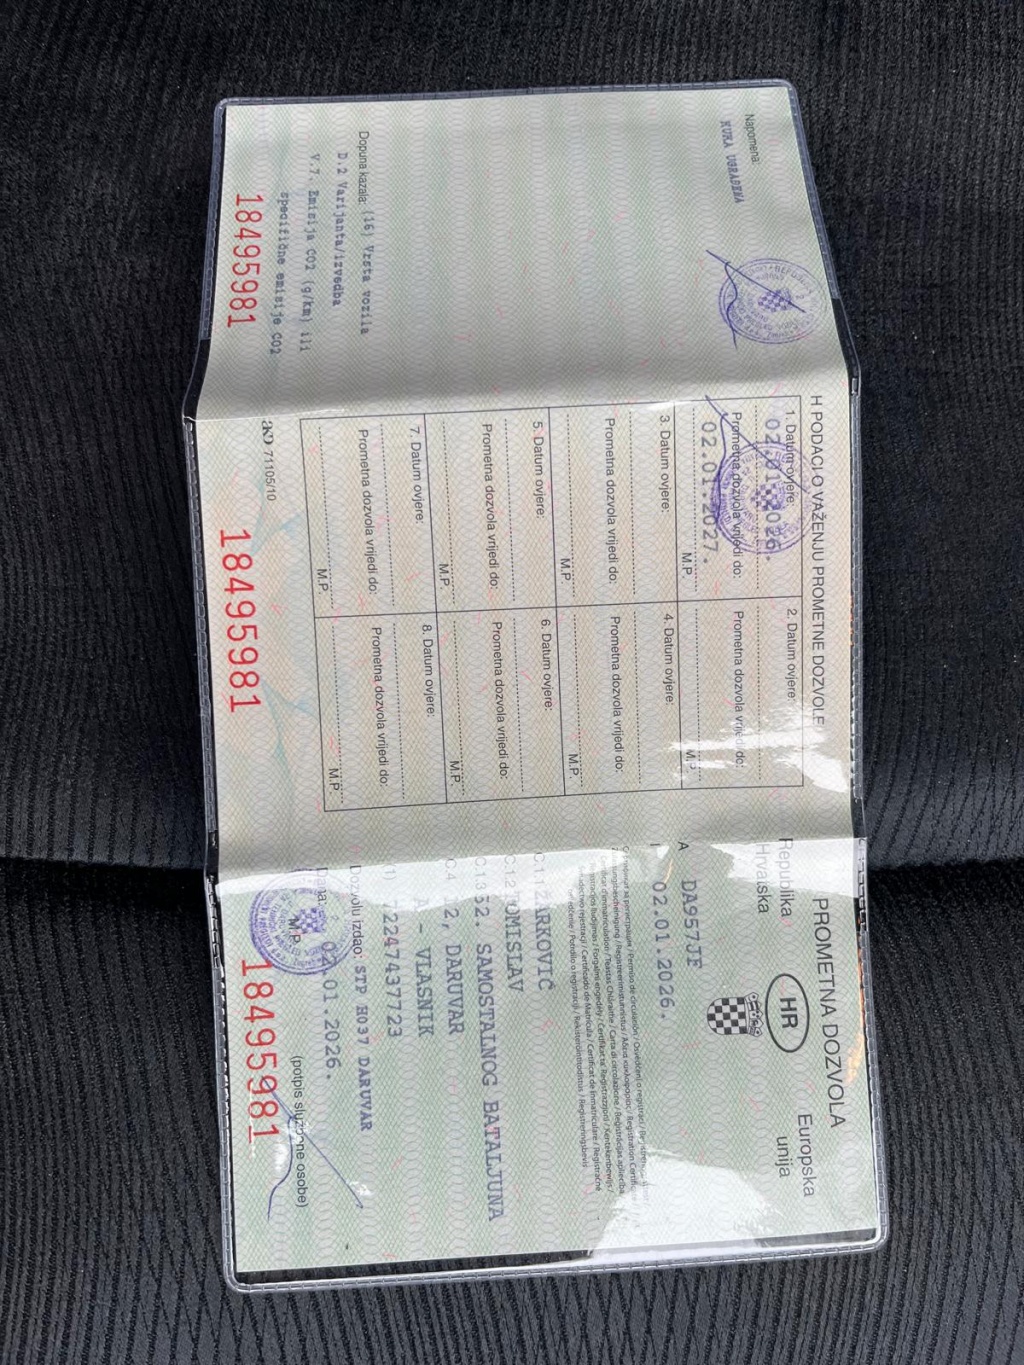 PROMETNA DOZVOLA
Republika
Hrvatska
HR
Europska
unija
A DA957JF
I 02.01.2026.
C.1.1 ŽARKOVIĆ
C.1.2 TOMISLAV
C.1.3 52. SAMOSTALNOG BATALJUNA
12, DARUVAR
C.4 A - VLASNIK
(1) 72247437723
Dozvolu izdao: STP H037 DARUVAR
Dana: 02.01.2026.
M.P.
(potpis službene osobe)
18495981
H PODACI O VAŽENJU PROMETNE DOZVOLE
1. Datum ovjere:
02.01.2026.
Prometna dozvola vrijedi do:
02.01.2027.
M.P.
2. Datum ovjere:
Prometna dozvola vrijedi do:
M.P.
3. Datum ovjere:
Prometna dozvola vrijedi do:
M.P.
4. Datum ovjere:
Prometna dozvola vrijedi do:
M.P.
5. Datum ovjere:
Prometna dozvola vrijedi do:
M.P.
6. Datum ovjere:
Prometna dozvola vrijedi do:
M.P.
7. Datum ovjere:
Prometna dozvola vrijedi do:
M.P.
8. Datum ovjere:
Prometna dozvola vrijedi do:
M.P.
71105/10
18495981
Napomena:
KUKA UGRAĐENA
Dopuna kazala: (16) Vrsta vozila
D.2 Varijanta/izvedba
V.7. Emisija CO2 (g/km) ili
specifične emisije CO2
18495981